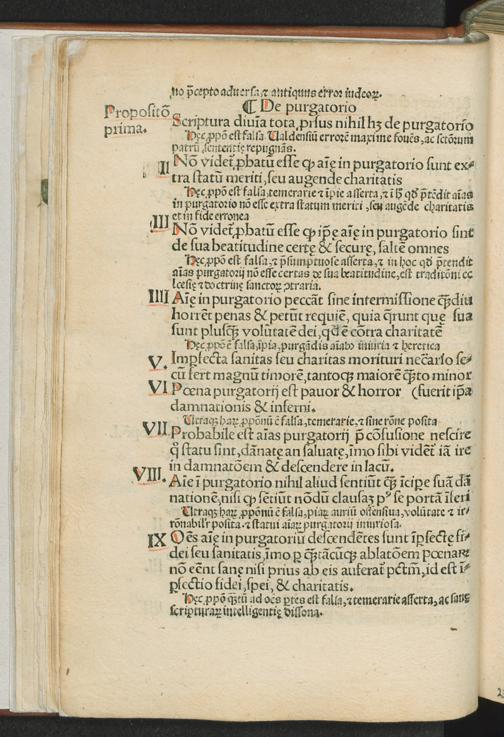 no p̄cepto aduersa, ⁊ antiquus error iudeoꝝ.
¶ De purgatorio
Propositō prima.
Scriptura diuīa tota, prsus nihil hꝫ de purgatorīo
Hęc ꝓpō est falsa Ualdensiū errorē maxime fouēs, ac sctorum
patrū sententię repugnās.
II Nō videt̄ ꝓbatū esse ꝙ aīę in purgatorio sunt ex⸗
tra statū meriti, seu augende charitatis
Hęc ꝓpō est falsa, temerarie ⁊ īpie asserta, ⁊ ī h̄ qd̄ p̄tēdit aīas
in purgatorio nō esse extra statum meriti, seu augēde charitatis
et in fide erronea
III Nō videt̄ ꝓbatū esse ꝙ ip̄ę aīę in purgatorio sint
de sua beatitudine certę & securę, saltē omnes
Hęc ꝓpō est falsa, ⁊ p̄sumptuose asserta, ⁊ in hoc qd̄ p̄tendit
aīas purgatorij nō esse certas de sua beatitudine, est traditōni ec
clesię ⁊ doctrinę sanctoꝝ ꝯtraria.
IIII Aīę in purgatorio peccāt sine intermissione qͣ̄diu
horrēt penas & petūt requiē, quia q̄runt quę sua
sunt plusqͣ̄ volūtatē dei, qd̄ ē cōtra charitatē
Hęc ꝓpō ē falsa, īpia, purgādis aīab⁹ iniuria ⁊ heretica
V. Imꝑfecta sanitas seu charitas morituri nec̄ario se⸗
cū fert magnū timorē, tantoqꝫ maiorē qͣ̄to minor
VI Pœna purgatorij est pauor & horror (fuerit ip̄a
damnationis & inferni.
Utraqꝫ haꝝ ꝓpōnū ē falsa, temerarie, ⁊ sine rōne posita
VII Probabile est aīas purgatorij p̄ cōfusione nescire
q̄ statu sint, dānatę an saluatę, īmo sibi videt̄ iā ire
in damnatōem & descendere in lacū.
VIII. Aīę ī purgatorio nihil aliud sentiūt qͣ̄ īcipe suā dā
nationē, nisi ꝙ sētiūt nōdū clausaȝ pꝰ se portā īferi
Utraqꝫ haꝝ ꝓpōnū ē falsa, piaꝝ auriū offensiua, volūtate ⁊ ir⸗
rōnabilr̄ posita ⁊ statui aīaꝝ purgatorij iniuriosa.
IX Oēs aīę in purgatoriū descendētes sunt īꝑfectę fi⸗
dei seu sanitatis, īmo ꝑ qͣ̄tācūqꝫ ablatōem pœnaꝝ
nō eēnt sanę nisi prius ab eis auferat̄ pctm̄, id est ī⸗
ꝑfectio fidei, spei, & charitatis.
Hęc ꝓpō qͣ̄tū ad oēs ptes est falsa, ⁊ temerarie asserta, ac sanę
scripturaꝝ intelligentię dissona.